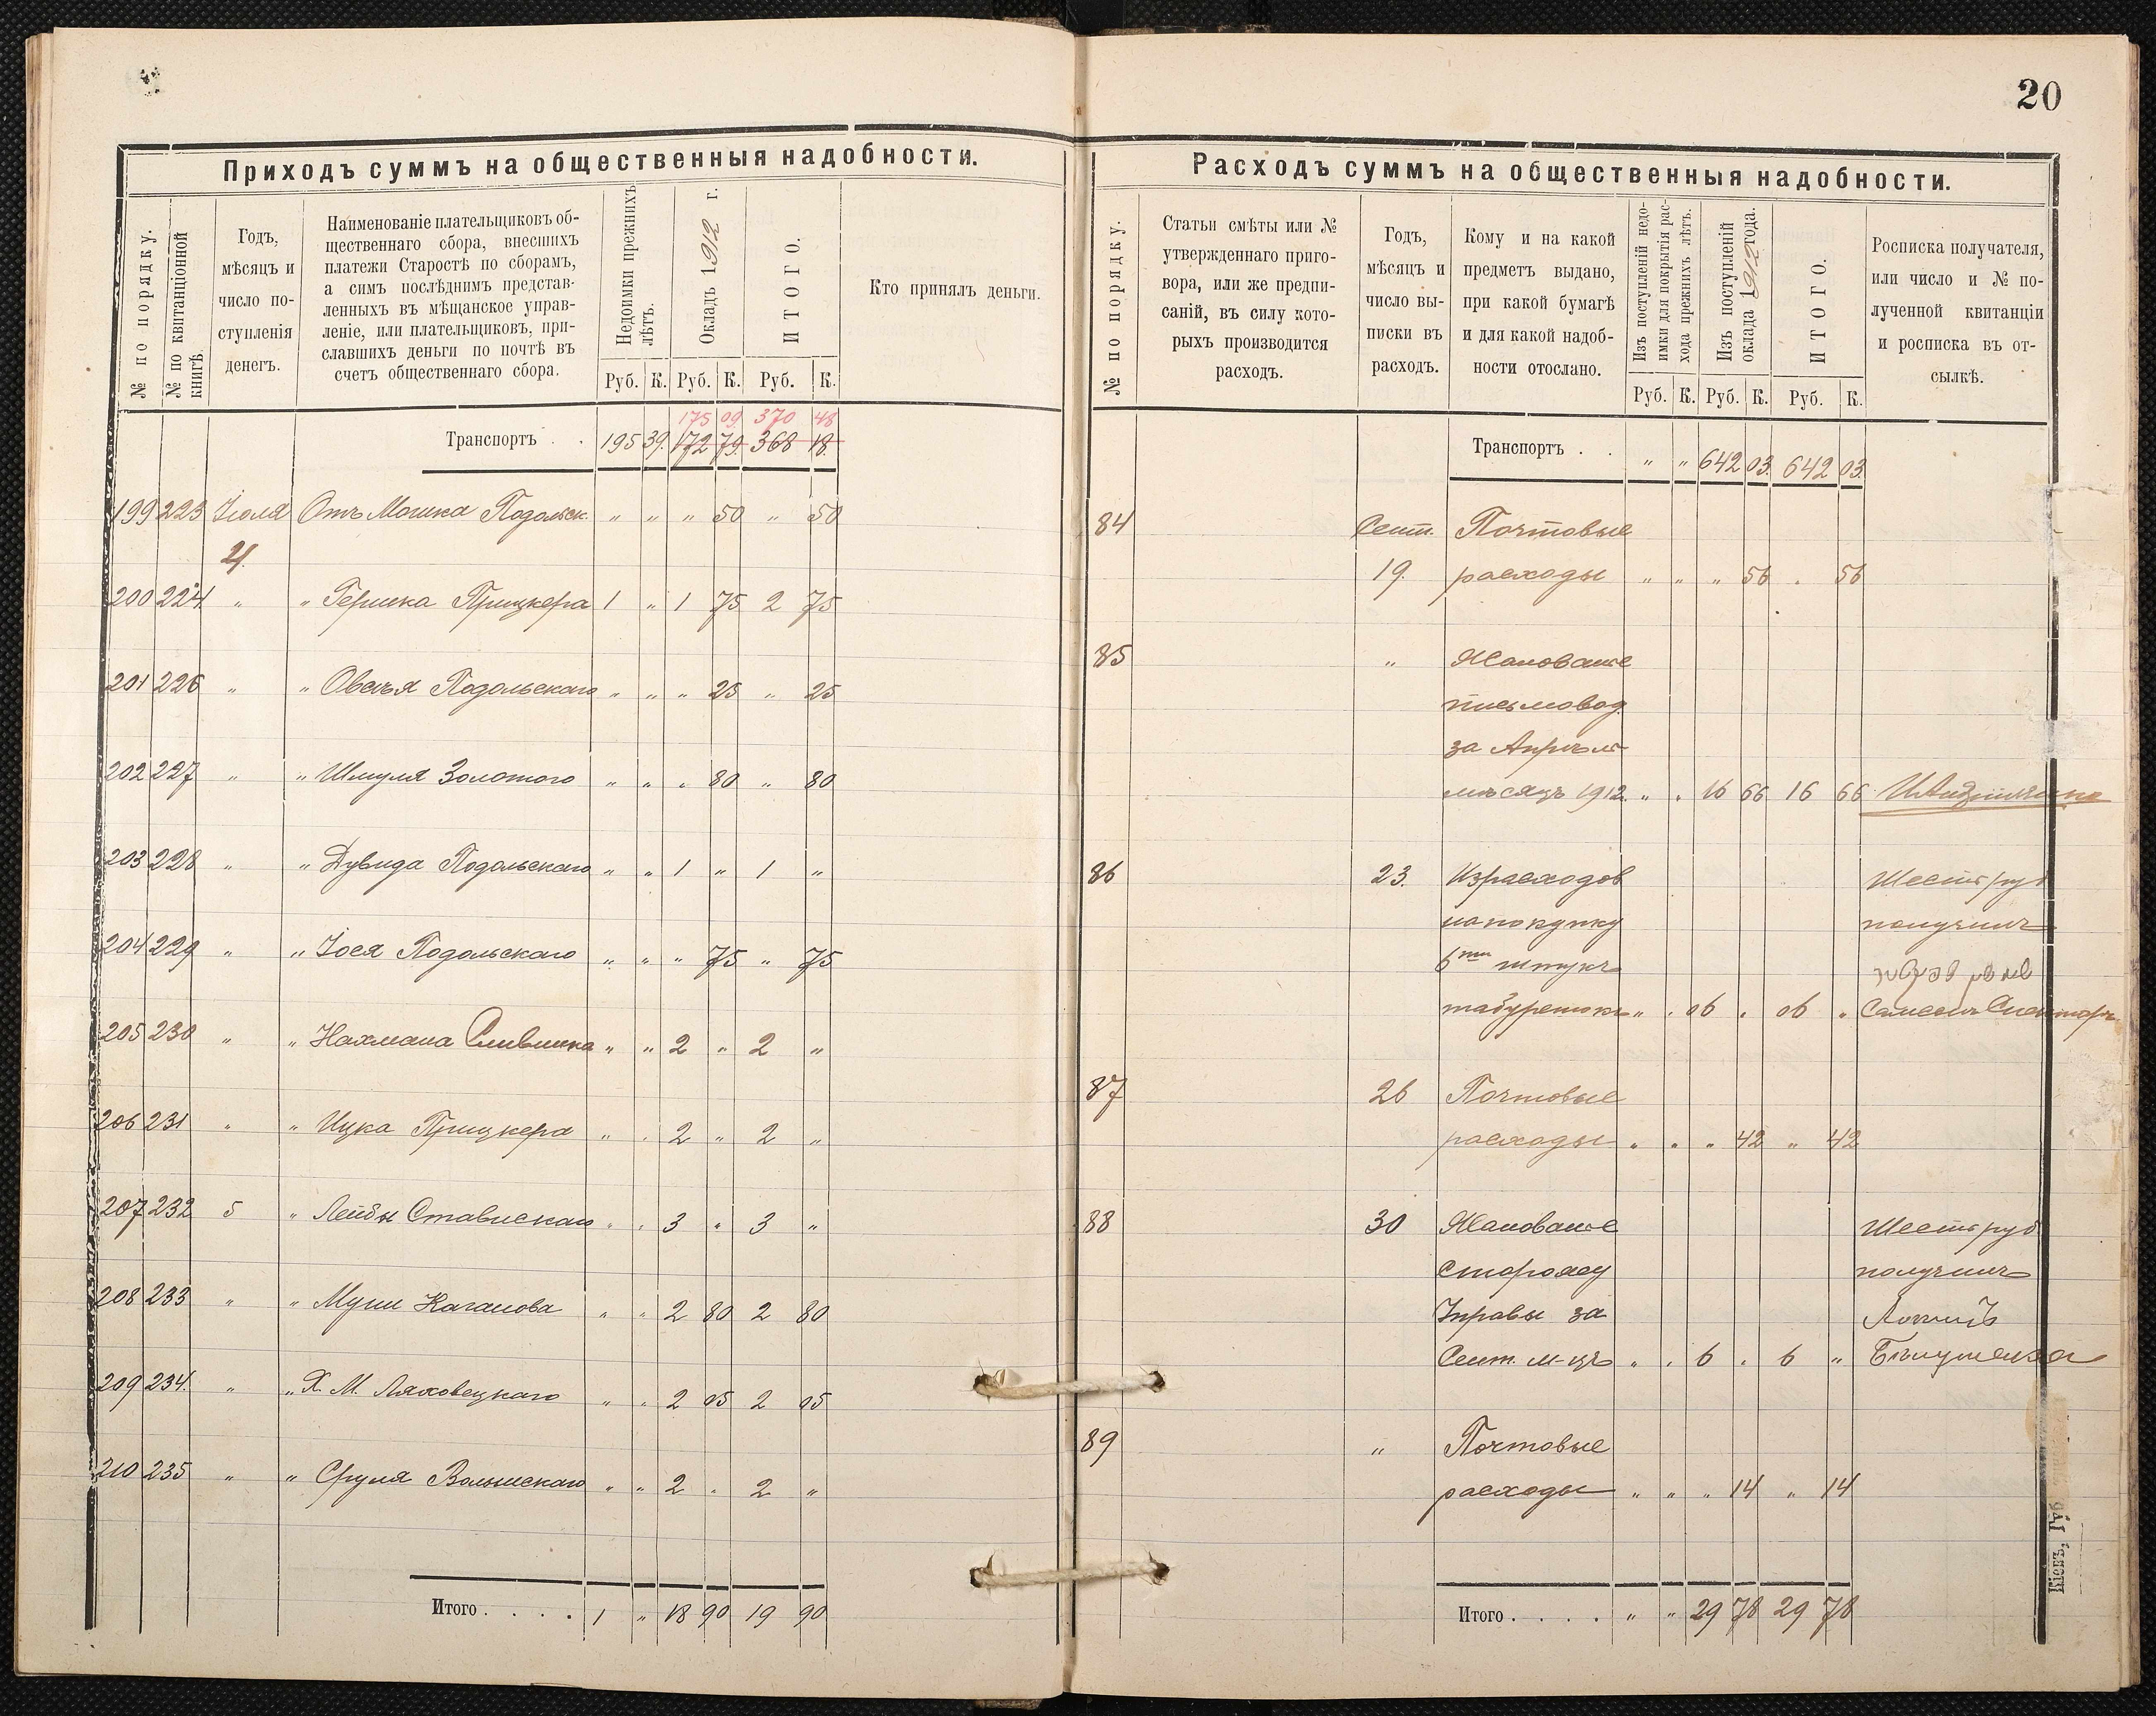 20
Приходъ суммъ на общественныя надобности.
№ по порядку.
№ по квитанціонной книгѣ.
Годъ,
мѣсяцъ и
число по-
ступленія
денегъ.
Наименованіе плательщиковъ об-
щественнаго сбора, внесшихъ
платежи Старостѣ по сборамъ,
а симъ послѣднимъ представ-
ленныхъ въ мѣщанское управ-
леніе, или плательщиковъ, при-
славшихъ деньги по почтѣ въ
счетъ общественнаго сбора.
Недоимки прежнихъ
лѣтъ.
Окладъ 1912 г.
ИТОГО.
Кто принялъ деньги.
Руб. К. Руб. К. Руб. К.
175 09 370 48
Транспортъ . . 195 39 172 79 368 18
199 223 Іюля Отъ Мошка Подольск. " " " 50 " 50
21.
200 224 " " Гершка Прицкера 1 " 1 75 2 75
201 226 " " Овсѣя Подольскаго " " " 25 " 25
202 227 " " Шмуля Золотого " " " 80 " 80
203 228 " " Дувида Подольскаго " " 1 " 1 "
204 229 " " Іося Подольскаго " " " 75 " 75
205 230 " " Нахмана Сливника " " 2 " 2 "
206 231 " " Ицка Прицкера " " 2 " 2 "
207 232 5 " Лейбы Ставискаго " " 3 " 3 "
208 233 " " Муни Каганова " " 2 80 2 80
209 234 " " Х. М. Ляховецкаго " " 2 05 2 05
210 235 " " Сруля Волынскаго " " 2 " 2 "
Итого . . . . 1 " 18 90 19 90
Расходъ суммъ на общественныя надобности.
№ по порядку.
Статьи смѣты или №
утвержденнаго приго-
вора, или же предпи-
саній, въ силу кото-
рыхъ производится
расходъ.
Годъ,
мѣсяцъ и
число вы-
писки въ
расходъ.
Кому и на какой
предметъ выдано,
при какой бумагѣ
и для какой надоб-
ности отослано.
Изъ поступленій недо-
имки для покрытія рас-
хода прежнихъ лѣтъ.
Изъ поступленій
оклада 1912 года.
ИТОГО.
Росписка получателя,
или число и № по-
лученной квитанціи
и росписка въ от-
сылкѣ.
Руб. К. Руб. К. Руб. К.
Транспортъ . . " " 642 03 642 03
84 Сент. Почтовые
19. расходы " " " 56 " 56
85 " Жалованіе
письмовод.
за Апрѣль
мѣсяцъ 1912. " " 16 66 16 66
86 23. Израсходов Шесть руб
на покупку получилъ
6ти штукъ
табуретокъ " " 06 " 06 "
87 26 Почтовые
расходы " " " 42 " 42
88 30 Жалованіе Шесть руб
сторожу получилъ
Управы за
Сент. м-цъ " " 6 " 6 "
89 " Почтовые
расходы " " " 14 " 14
Итого . . . . " " 29 78 29 78
Кіевъ, Губ